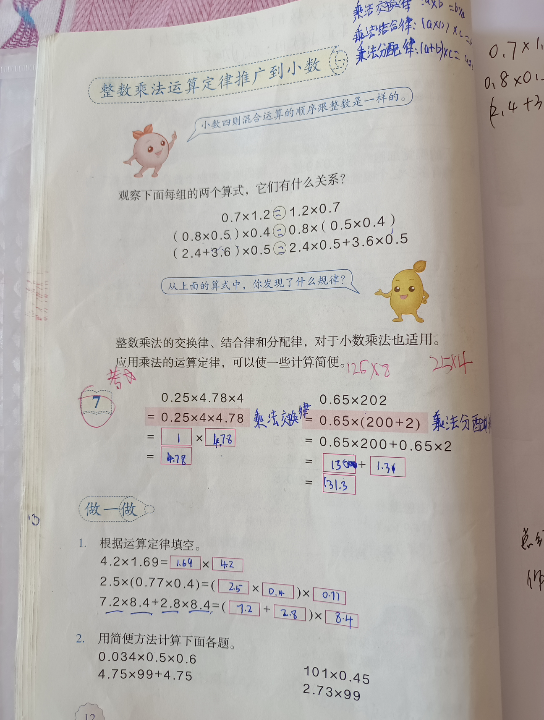 乘法交换律:a×b=b×a
乘法结合律:(a×b)×c=
乘法分配律:(a+b)×c=
0.7×1.
0.8×0.
2.4+3
整数乘法运算定律推广到小数
小数四则混合运算的顺序跟整数是一样的。
观察下面每组的两个算式,它们有什么关系?
0.7×1.2=1.2×0.7
(0.8×0.5)×0.4=0.8×(0.5×0.4)
(2.4+3.6)×0.5=2.4×0.5+3.6×0.5
从上面的算式中,你发现了什么规律?
整数乘法的交换律、结合律和分配律,对于小数乘法也适用。
应用乘法的运算定律,可以使一些计算简便。 125×8 25×4
7
0.25×4.78×4
=0.25×4×4.78 乘法交换律
=1×4.78
=4.78
0.65×202
=0.65×(200+2) 乘法分配律
=0.65×200+0.65×2
=130+1.3
=131.3
做一做
1. 根据运算定律填空。
4.2×1.69=1.69×4.2
2.5×(0.77×0.4)=(2.5×0.4)×0.77
7.2×8.4+2.8×8.4=(7.2+2.8)×8.4
2. 用简便方法计算下面各题。
0.034×0.5×0.6
4.75×99+4.75
101×0.45
2.73×99
12